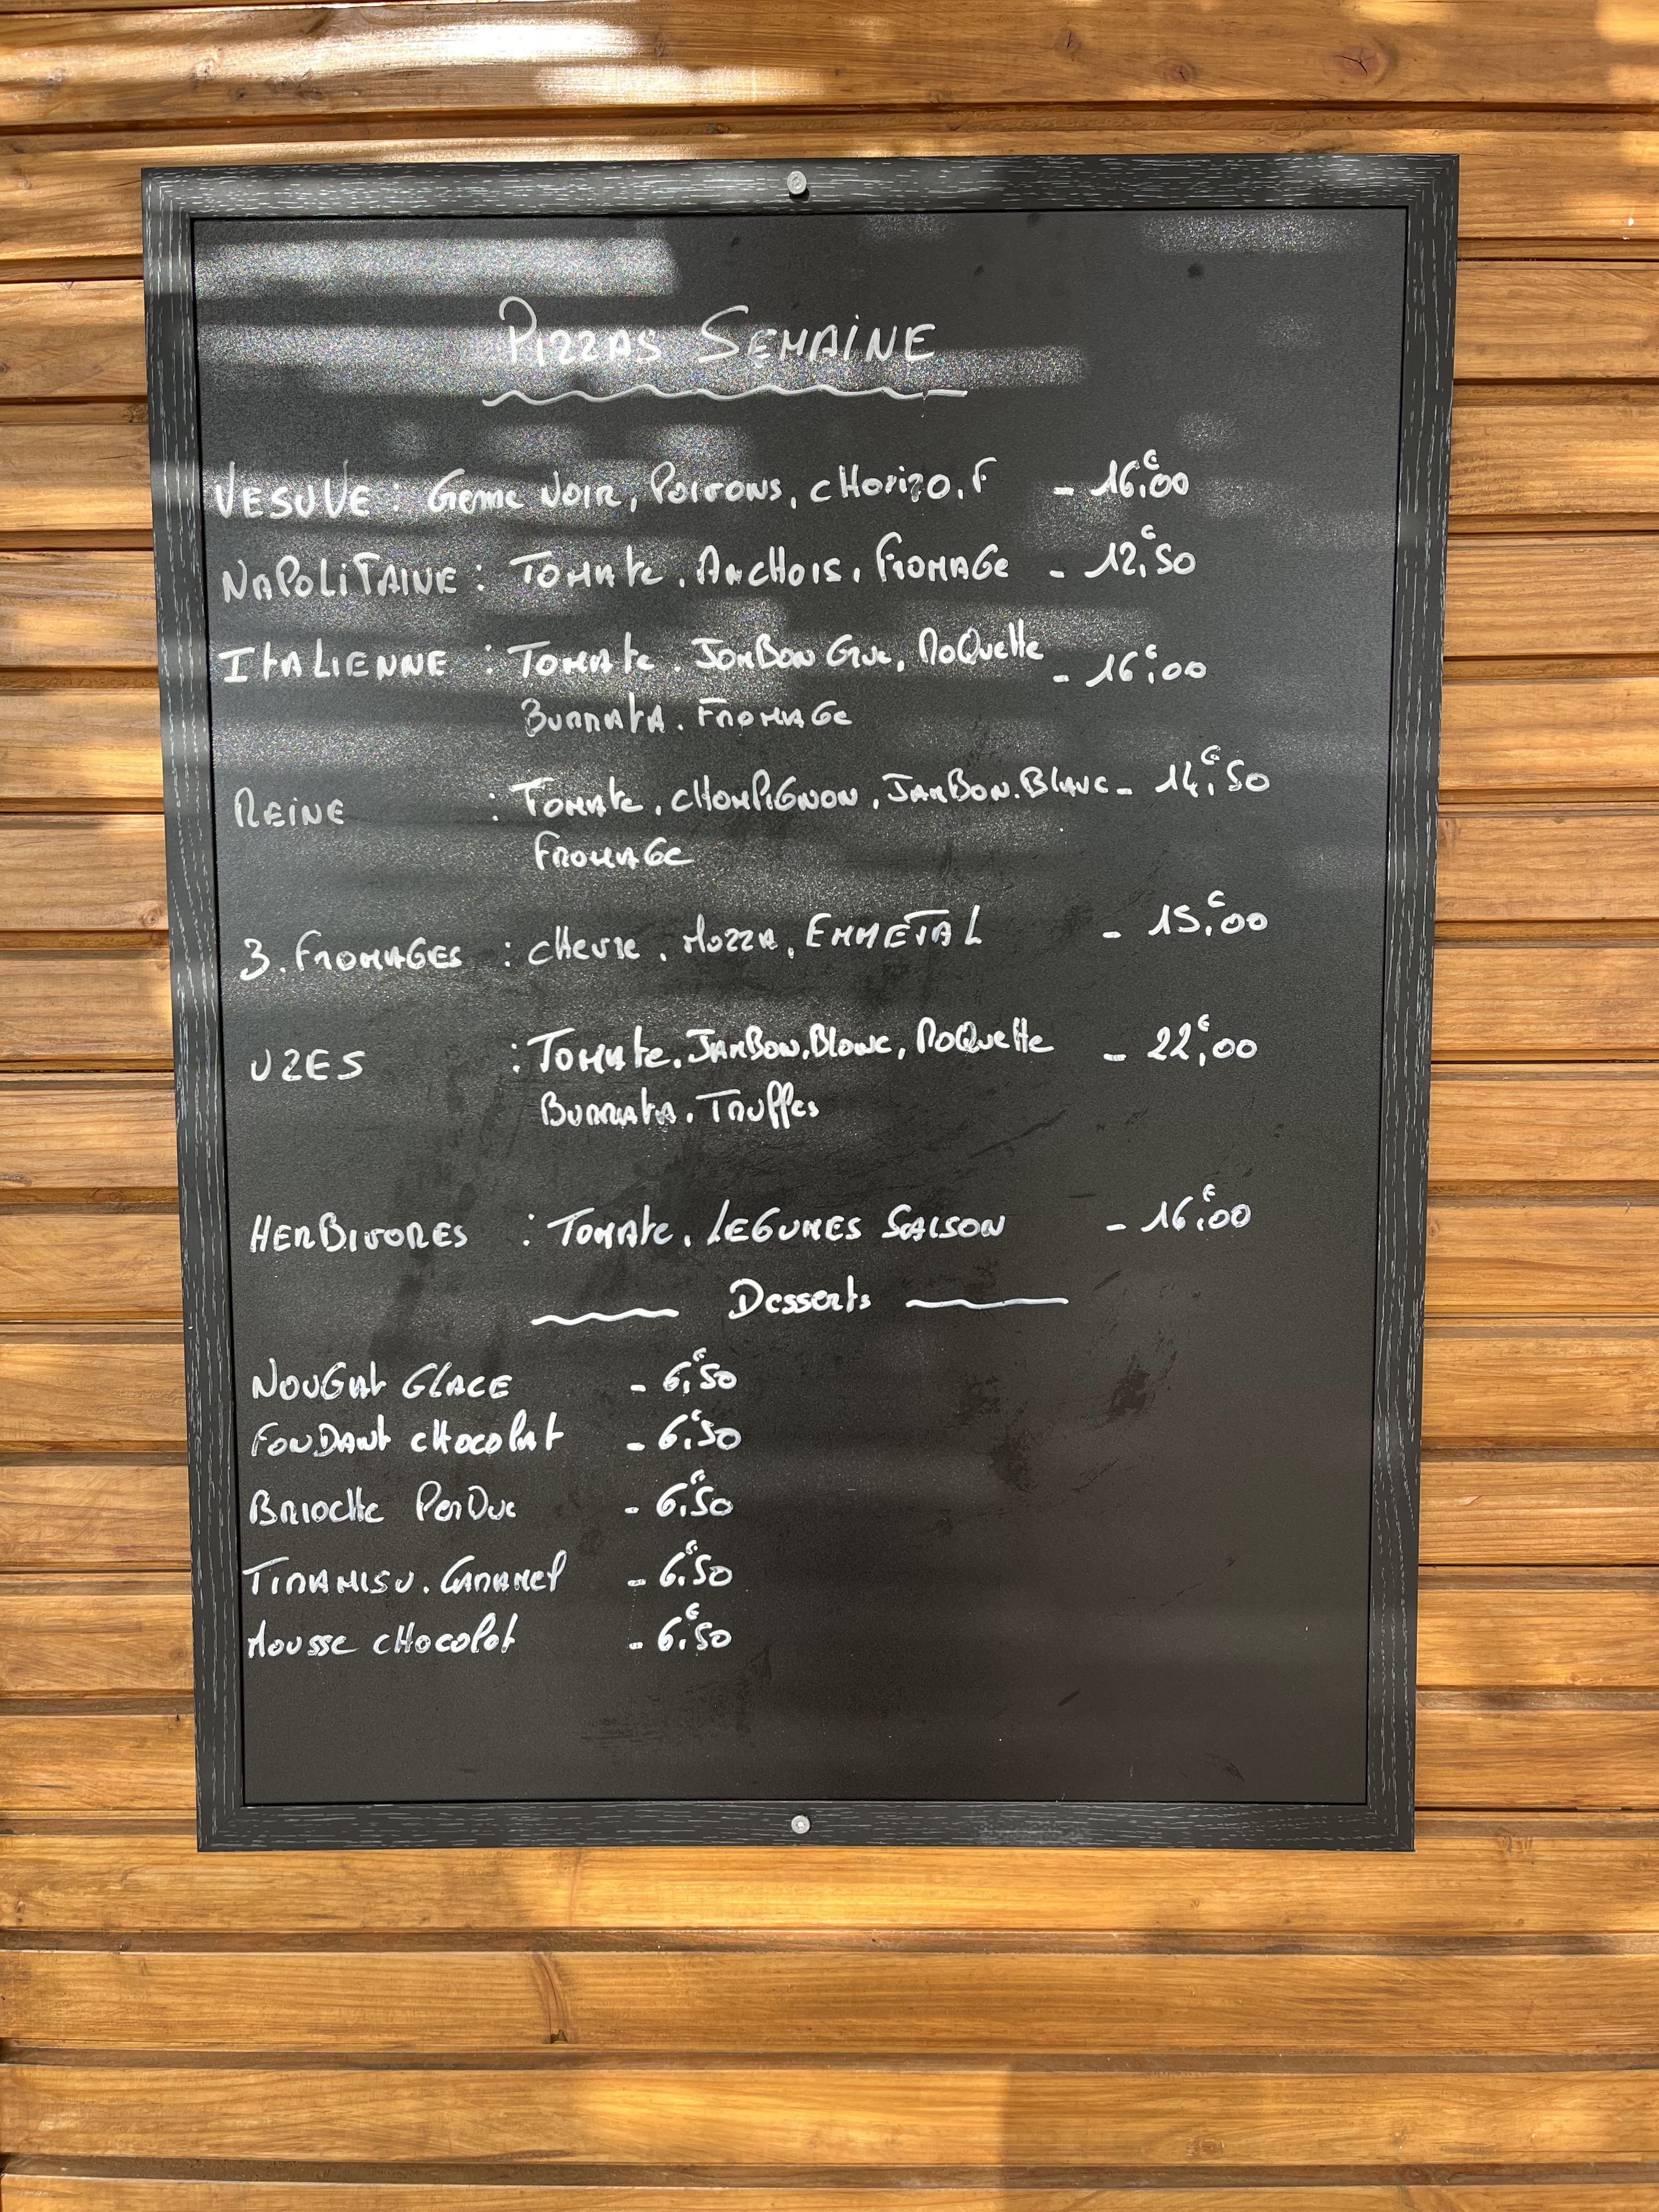 PIZZAS SEMAINE
VESUVE : Creme NOIR, POIVRONS, CHORIZO, F - 16,€00
NAPOLITAINE : TOMATE, ANCHOIS, FROMAGE - 12,€50
ITALIENNE : TOMATE, JAMBON CRUE, ROQUETTE - 16,€00
BURRATA, FROMAGE
REINE : TOMATE, CHAMPIGNON, JAMBON.BLANC - 14,€50
FROMAGE
3.FROMAGES : CHEVRE, MOZZA, EMMETAL - 15,€00
UZES : TOMATE, JAMBON,BLANC, ROQUETTE - 22,€00
BURRATA, TRUFFES
HERBIVORES : TOMATE, LEGUMES SAISON - 16,€00
Desserts
NOUGAT GLACE - 6,€50
FONDANT CHOCOLAT - 6,€50
BRIOCHE PERDUE - 6,€50
TIRAMISU. CARAMEL - 6,€50
MOUSSE CHOCOLAT - 6,€50